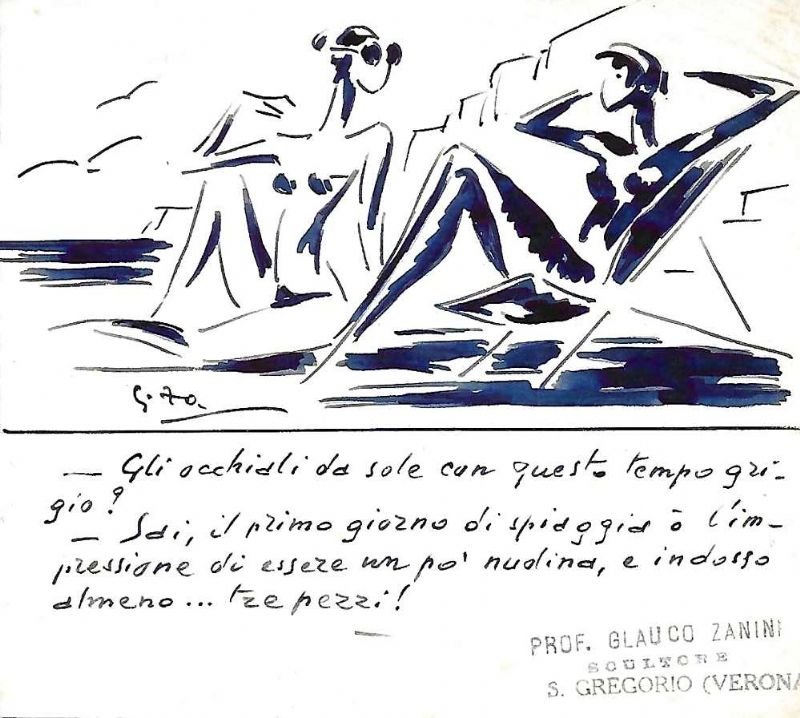 G. Zo.
— Gli occhiali da sole con questo tempo gri-
gio?
— Sai, il primo giorno di spiaggia ò l'im-
pressione di essere un po' nudina, e indosso
almeno... tre pezzi!
PROF. GLAUCO ZANINI
SCULTORE
S. GREGORIO (VERONA